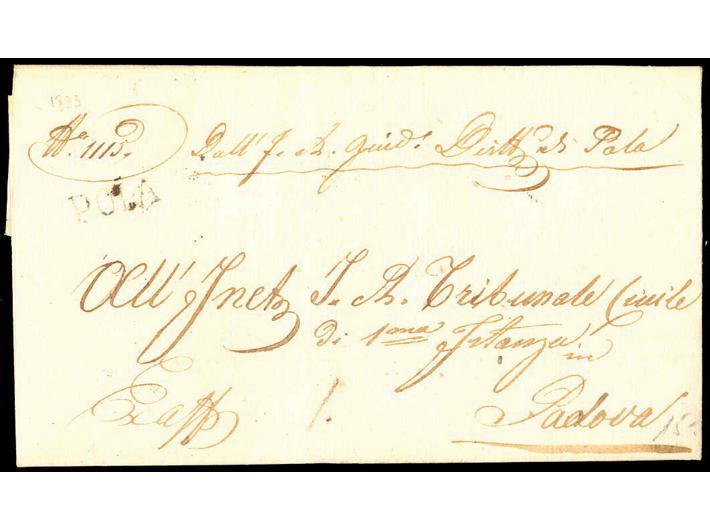 1833
N.º 1115. Dall' I. R. Giud.º Distt.º di Pola
POLA
All' Incl. I. R. Tribunale Civile
di 1ma Istanza in
Exoff 1.
Padova 15